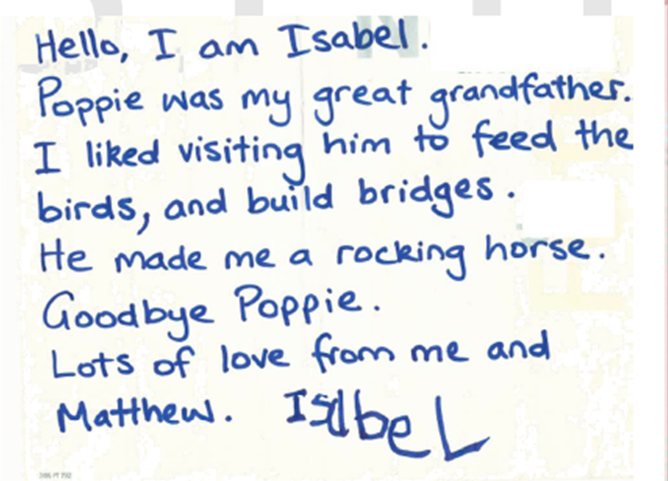 Hello, I am Isabel.
Poppie was my great grandfather.
I liked visiting him to feed the
birds, and build bridges.
He made me a rocking horse.
Goodbye Poppie.
Lots of love from me and
Matthew. IsabeL